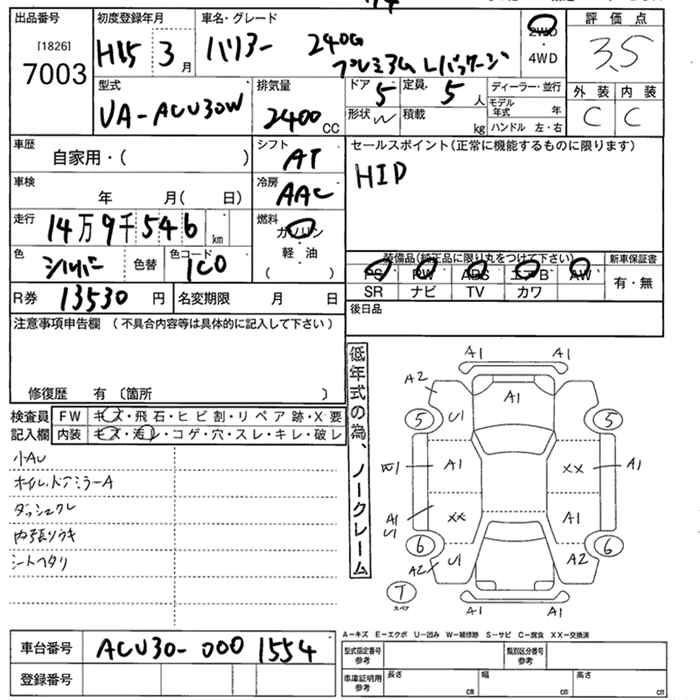 出品番号
[1826]
7003
初度登録年月
H15 3 月
車名・グレード
ハリアー 240G
プレミアム Lパッケージ
2WD
4WD
評価点
3.5
外装 内装
C C
型式
UA-ACU30W
排気量
2400 CC
ドア 5
定員 5 人
形状 W
積載 kg
ディーラー・並行
モデル年式 年
ハンドル 左・右
車歴
自家用・( )
シフト
AT
車検
年 月( 日)
冷房
AAC
走行
14万9千546 km
燃料
ガソリン
・
軽・油
( )
色
シルバー
色替
色コード
1C0
R券 13530 円
名変期限 月 日
セールスポイント(正常に機能するものに限ります)
HID
装備品(純正品に限り丸をつけて下さい)
新車保証書
PS PW ABS エアB AW
SR ナビ TV カワ
有・無
後日品
注意事項申告欄 (不具合内容等は具体的に記入して下さい)
修復歴 有〔箇所 〕
検査員記入欄
FW キズ・飛石・ヒビ割・リペア跡・X要
内装 キズ・汚レ・コゲ・穴・スレ・キレ・破レ
小AU
オイル、ドアミラーA
ダッシュクレ
内張りウキ
シートヘタリ
低年式の為、ノークレーム
A1 A1
A2
A1
U1
5 5
W1 A1 XX A1
A1
U1
XX A1
6 6
A2 U1 A2
T
スペア
A1 A1
A-キズ E-エクボ U-凹み W-補修跡 S-サビ C-腐食 XX-交換済
車台番号 ACU30-0001554
登録番号
型式指定番号
参考
類別区分番号
参考
車庫証明用
参考
長さ cm
幅 cm
高さ cm